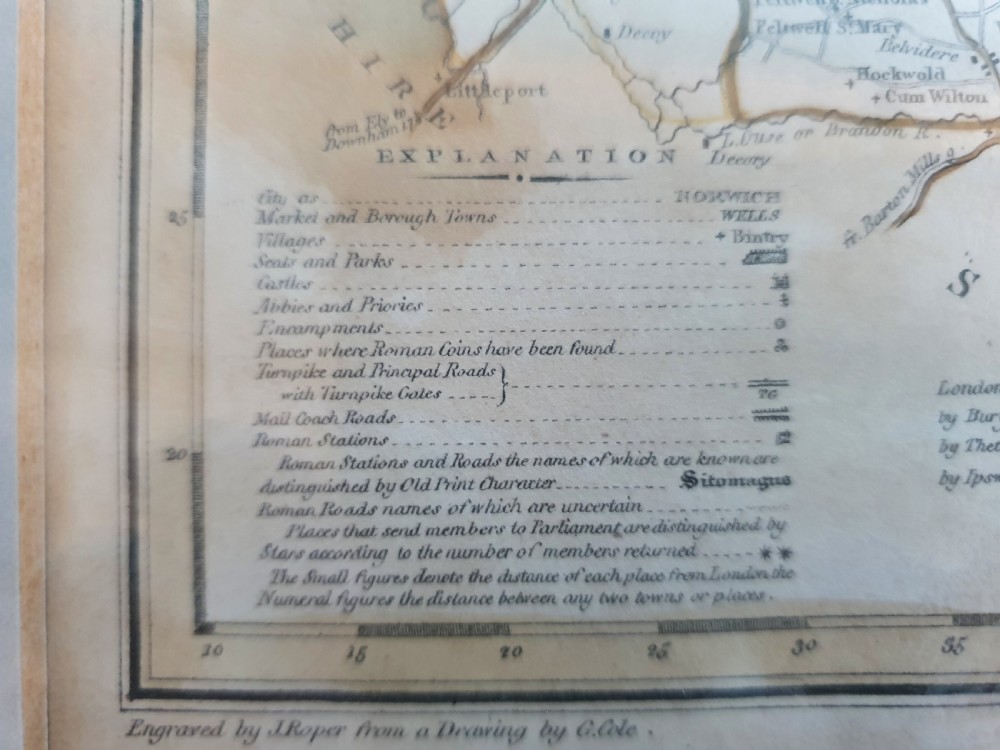 Feltwell S.t Mary
Decoy
Belvidere
Hockwold
+ Cum Wilton
Littleport
HIRE
from Ely to
Downham 17
L. Ouse or Brandon R.
Decoy
fr. Barton Mills 9
S
EXPLANATION
City as NORWICH
Market and Borough Towns WELLS
Villages + Bintry
Seats and Parks
Castles
Abbies and Priories
Encampments
Places where Roman Coins have been found
Turnpike and Principal Roads
with Turnpike Gates TG
Mail Coach Roads
Roman Stations
Roman Stations and Roads the names of which are known are
distinguished by Old Print Character Sitomagus
Roman Roads names of which are uncertain
Places that send members to Parliament are distinguished by
Stars according to the number of members returned ✶ ✶
The Small figures denote the distance of each place from London the
Numeral figures the distance between any two towns or places.
London
by Bury
by Thet
by Ipsw
25
20
10 15 20 25 30 35
Engraved by J. Roper from a Drawing by G. Cole.